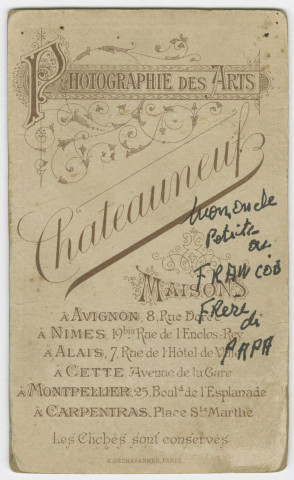 PHOTOGRAPHIE DES ARTS
Chateauneuf
MAISONS
à AVIGNON, 8, Rue Dorée
à NIMES, 19bis Rue de l'Enclos-Rey
à ALAIS, 7, Rue de l'Hôtel de Ville
à CETTE Avenue de la Gare
à MONTPELLIER, 25, Bould. de l'Esplanade
à CARPENTRAS, Place Ste Marthe
Les Clichés sont conservés
PARIS
mon oncle
FRANÇOIS
FRERE
di
PAPA